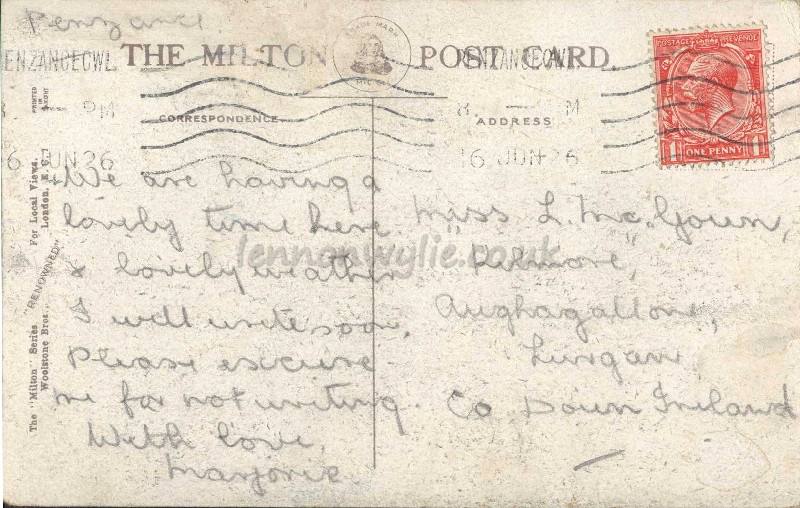 Penzance
ENZANCE CWL.
THE MILTON POST CARD.
TRADE MARK
PENZANCE CWL
8 — PM
8 — M
PRINTED IN SAXONY
CORRESPONDENCE
ADDRESS
POSTAGE REVENUE
ONE PENNY
1
1
6 JUN 26
16 JUN 26
We are having a
lovely time here
& lovely weather
I will write soon.
Please excuse
me for not writing.
With love
Marjorie.
Miss L. McGoun,
Aughagallone,
Lurgan
Co Down Ireland
lennonwylie.co.uk
The "Milton" Series "RENOWNED" For Local Views.
Woolstone Bros London, E.C.1